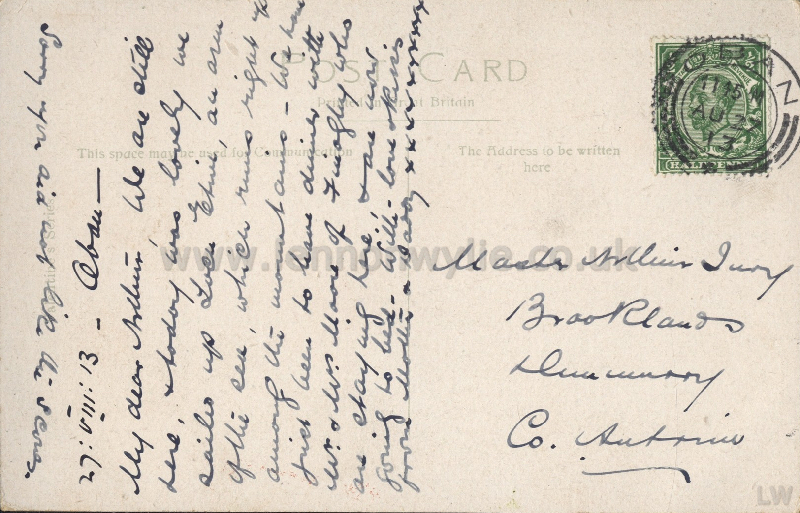 POST CARD
Printed in Great Britain
This space may be used for Communication
The Address to be written
here
OBAN
11 15
AU 27
13
HALFPENNY
27: VIII: 13 – Oban –
My dear Arthur, We are still
here, & today was lovely we
sailed up Loch Etive, an arm
of the sea, which runs right up
among the mountains – We have
just been to have dinner with
Mr & Mrs Moore of who
are staying here, & are now
going to bed – With love & kisses
from Mother & Daddy xxxxxxxxx
Sorry you did not like the
Master Arthur Ivory
Brooklands
Dunmurry
Co. Antrim
www.lennonwylie.co.uk
LW